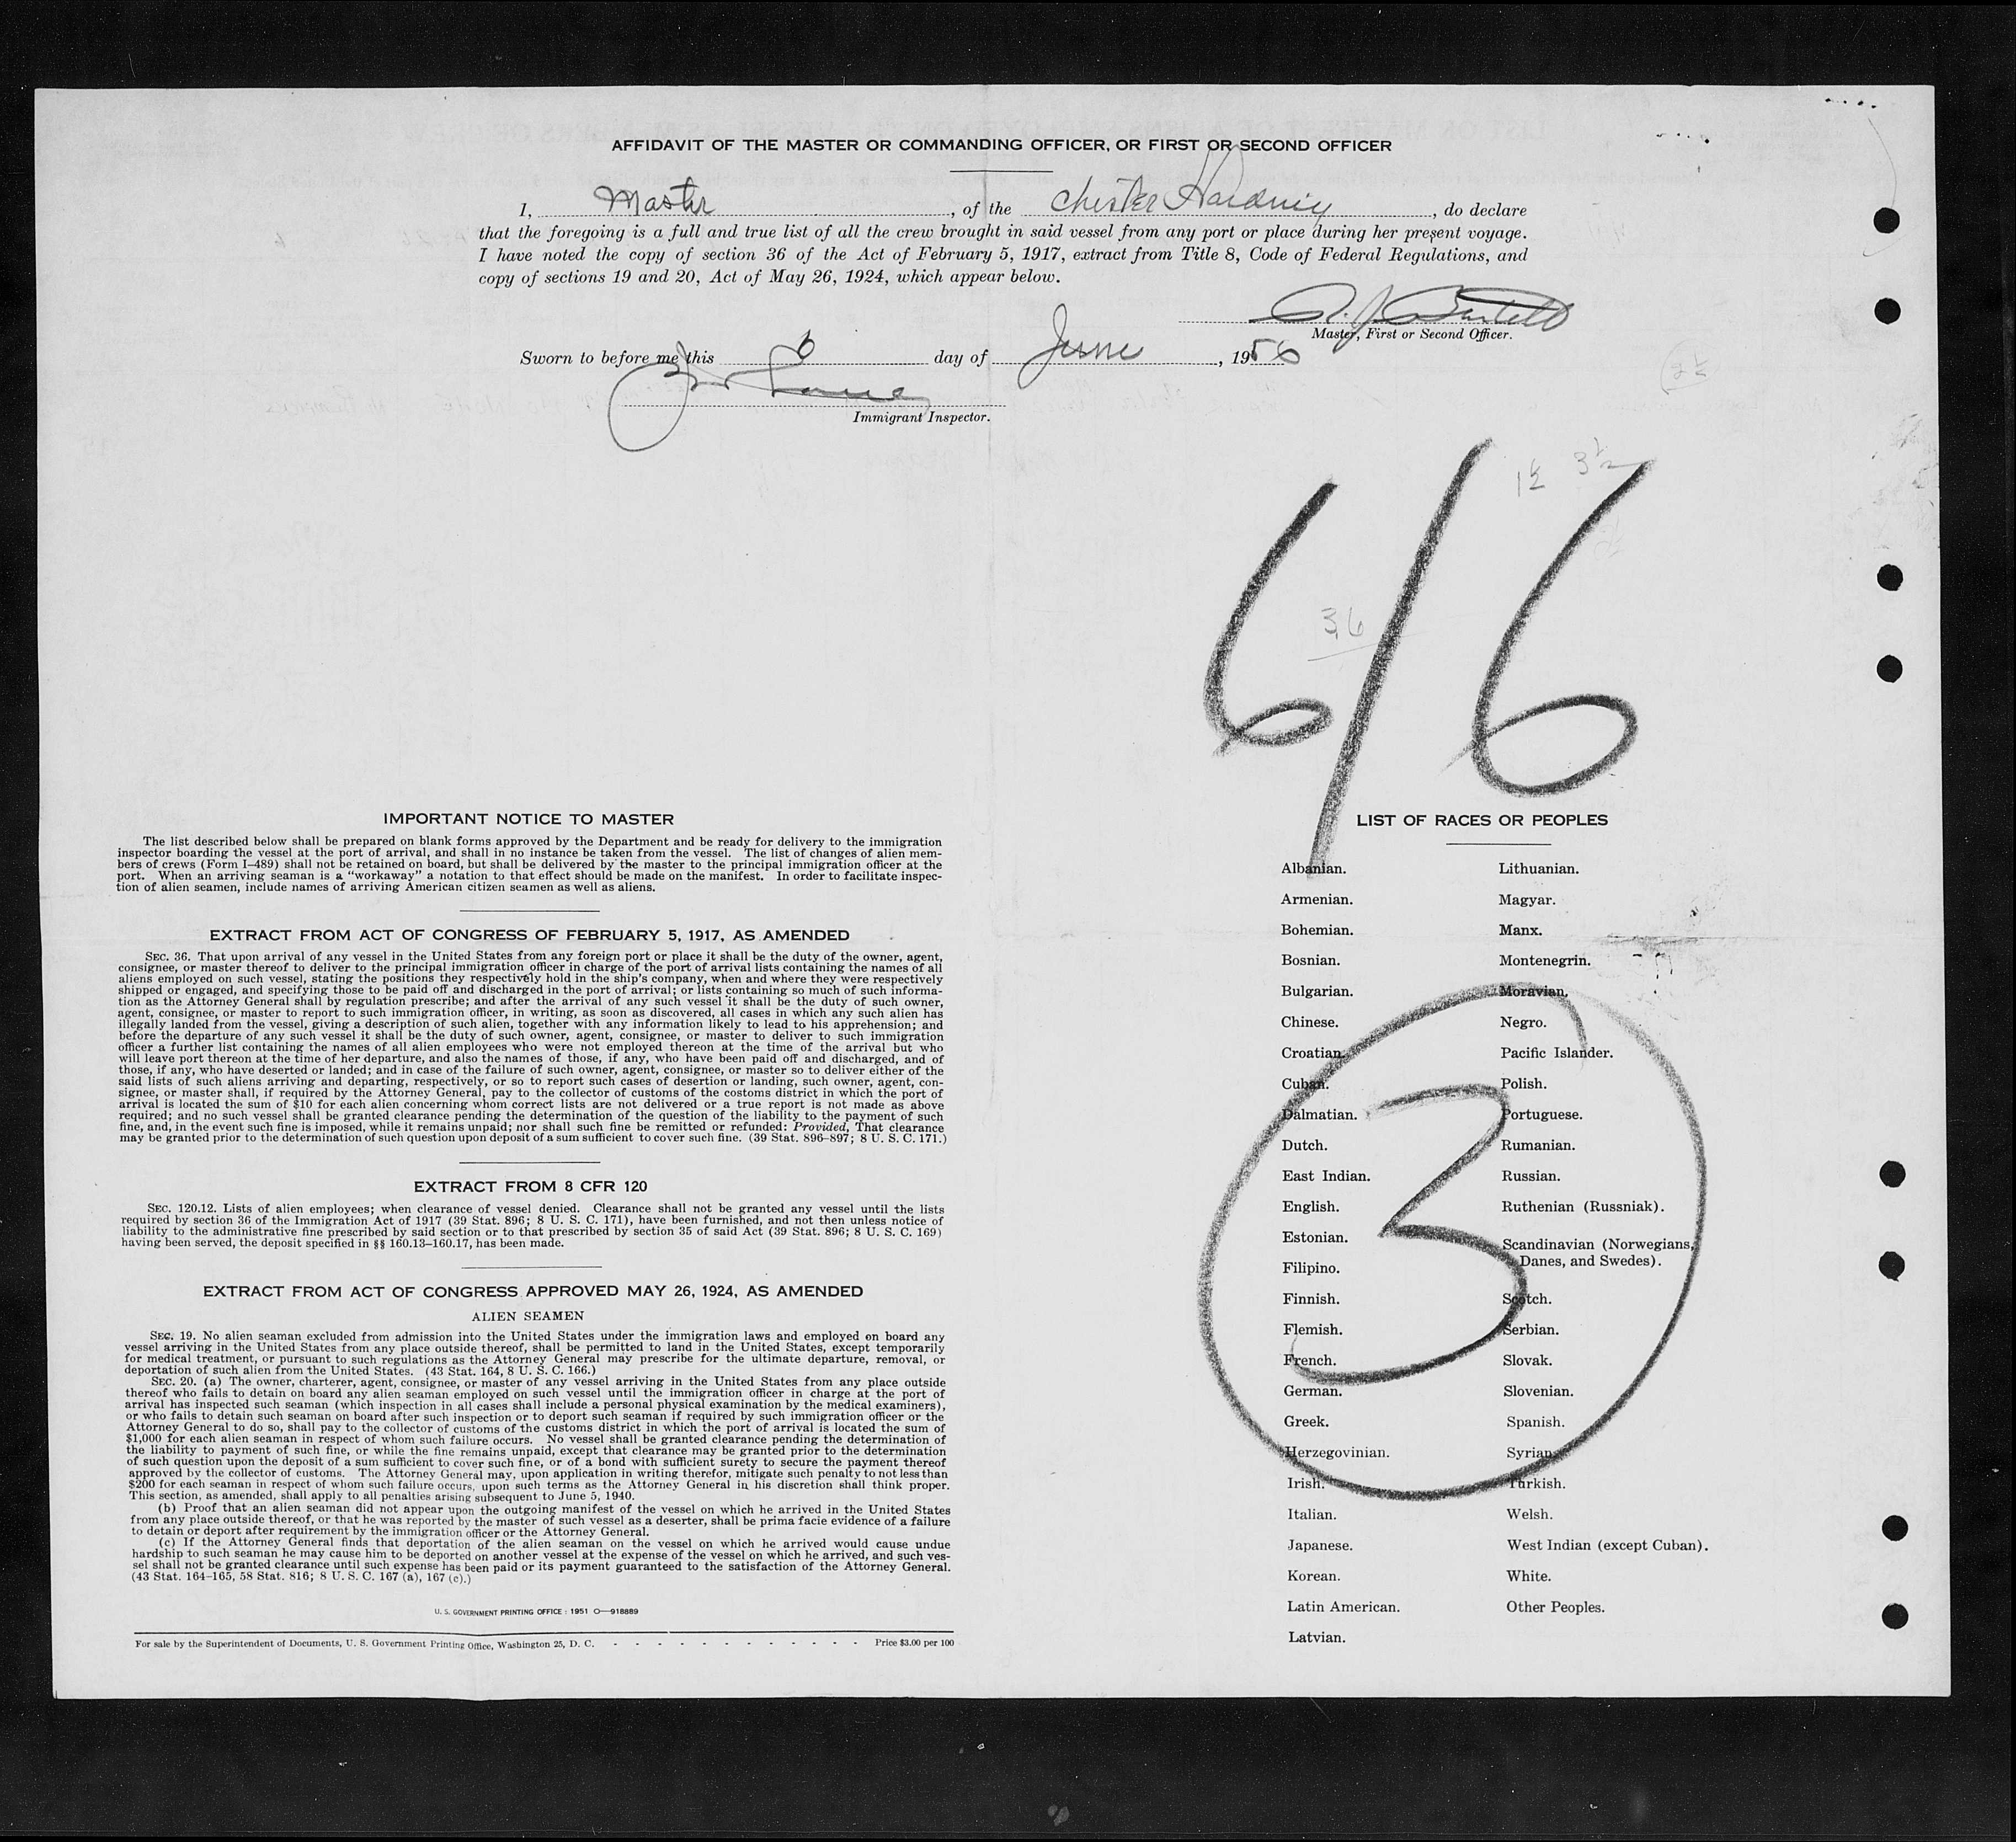 AFFIDAVIT OF THE MASTER OR COMMANDING OFFICER, OR FIRST OR SECOND OFFICER
I, Master, of the Chester, do declare
that the foregoing is a full and true list of all the crew brought in said vessel from any port or place during her present voyage.
I have noted the copy of section 36 of the Act of February 5, 1917, extract from Title 8, Code of Federal Regulations, and
copy of sections 19 and 20, Act of May 26, 1924, which appear below.
Master, First or Second Officer.
Sworn to before me this 6 day of June, 1956
Immigrant Inspector.
1½ 3½
36
6/6
IMPORTANT NOTICE TO MASTER
The list described below shall be prepared on blank forms approved by the Department and be ready for delivery to the immigration
inspector boarding the vessel at the port of arrival, and shall in no instance be taken from the vessel. The list of changes of alien mem-
bers of crews (Form I–489) shall not be retained on board, but shall be delivered by the master to the principal immigration officer at the
port. When an arriving seaman is a "workaway" a notation to that effect should be made on the manifest. In order to facilitate inspec-
tion of alien seamen, include names of arriving American citizen seamen as well as aliens.
EXTRACT FROM ACT OF CONGRESS OF FEBRUARY 5, 1917, AS AMENDED
SEC. 36. That upon arrival of any vessel in the United States from any foreign port or place it shall be the duty of the owner, agent,
consignee, or master thereof to deliver to the principal immigration officer in charge of the port of arrival lists containing the names of all
aliens employed on such vessel, stating the positions they respectively hold in the ship's company, when and where they were respectively
shipped or engaged, and specifying those to be paid off and discharged in the port of arrival; or lists containing so much of such informa-
tion as the Attorney General shall by regulation prescribe; and after the arrival of any such vessel it shall be the duty of such owner,
agent, consignee, or master to report to such immigration officer, in writing, as soon as discovered, all cases in which any such alien has
illegally landed from the vessel, giving a description of such alien, together with any information likely to lead to his apprehension; and
before the departure of any such vessel it shall be the duty of such owner, agent, consignee, or master to deliver to such immigration
officer a further list containing the names of all alien employees who were not employed thereon at the time of the arrival but who
will leave port thereon at the time of her departure, and also the names of those, if any, who have been paid off and discharged, and of
those, if any, who have deserted or landed; and in case of the failure of such owner, agent, consignee, or master so to deliver either of the
said lists of such aliens arriving and departing, respectively, or so to report such cases of desertion or landing, such owner, agent, con-
signee, or master shall, if required by the Attorney General, pay to the collector of customs of the costoms district in which the port of
arrival is located the sum of $10 for each alien concerning whom correct lists are not delivered or a true report is not made as above
required; and no such vessel shall be granted clearance pending the determination of the question of the liability to the payment of such
fine, and, in the event such fine is imposed, while it remains unpaid; nor shall such fine be remitted or refunded: Provided, That clearance
may be granted prior to the determination of such question upon deposit of a sum sufficient to cover such fine. (39 Stat. 896–897; 8 U. S. C. 171.)
EXTRACT FROM 8 CFR 120
SEC. 120.12. Lists of alien employees; when clearance of vessel denied. Clearance shall not be granted any vessel until the lists
required by section 36 of the Immigration Act of 1917 (39 Stat. 896; 8 U. S. C. 171), have been furnished, and not then unless notice of
liability to the administrative fine prescribed by said section or to that prescribed by section 35 of said Act (39 Stat. 896; 8 U. S. C. 169)
having been served, the deposit specified in §§ 160.13–160.17, has been made.
EXTRACT FROM ACT OF CONGRESS APPROVED MAY 26, 1924, AS AMENDED
ALIEN SEAMEN
SEC. 19. No alien seaman excluded from admission into the United States under the immigration laws and employed on board any
vessel arriving in the United States from any place outside thereof, shall be permitted to land in the United States, except temporarily
for medical treatment, or pursuant to such regulations as the Attorney General may prescribe for the ultimate departure, removal, or
deportation of such alien from the United States. (43 Stat. 164, 8 U. S. C. 166.)
SEC. 20. (a) The owner, charterer, agent, consignee, or master of any vessel arriving in the United States from any place outside
thereof who fails to detain on board any alien seaman employed on such vessel until the immigration officer in charge at the port of
arrival has inspected such seaman (which inspection in all cases shall include a personal physical examination by the medical examiners),
or who fails to detain such seaman on board after such inspection or to deport such seaman if required by such immigration officer or the
Attorney General to do so, shall pay to the collector of customs of the customs district in which the port of arrival is located the sum of
$1,000 for each alien seaman in respect of whom such failure occurs. No vessel shall be granted clearance pending the determination of
the liability to payment of such fine, or while the fine remains unpaid, except that clearance may be granted prior to the determination
of such question upon the deposit of a sum sufficient to cover such fine, or of a bond with sufficient surety to secure the payment thereof
approved by the collector of customs. The Attorney General may, upon application in writing therefor, mitigate such penalty to not less than
$200 for each seaman in respect of whom such failure occurs, upon such terms as the Attorney General in his discretion shall think proper.
This section, as amended, shall apply to all penalties arising subsequent to June 5, 1940.
(b) Proof that an alien seaman did not appear upon the outgoing manifest of the vessel on which he arrived in the United States
from any place outside thereof, or that he was reported by the master of such vessel as a deserter, shall be prima facie evidence of a failure
to detain or deport after requirement by the immigration officer or the Attorney General.
(c) If the Attorney General finds that deportation of the alien seaman on the vessel on which he arrived would cause undue
hardship to such seaman he may cause him to be deported on another vessel at the expense of the vessel on which he arrived, and such ves-
sel shall not be granted clearance until such expense has been paid or its payment guaranteed to the satisfaction of the Attorney General.
(43 Stat. 164–165, 58 Stat. 816; 8 U. S. C. 167 (a), 167 (c).)
U. S. GOVERNMENT PRINTING OFFICE : 1951 O—918889
For sale by the Superintendent of Documents, U. S. Government Printing Office, Washington 25, D. C. - - - - - - - - - - - - Price $3.00 per 100
LIST OF RACES OR PEOPLES
Albanian.
Armenian.
Bohemian.
Bosnian.
Bulgarian.
Chinese.
Croatian.
Cuban.
Dalmatian.
Dutch.
East Indian.
English.
Estonian.
Filipino.
Finnish.
Flemish.
French.
German.
Greek.
Herzegovinian.
Irish.
Italian.
Japanese.
Korean.
Latin American.
Latvian.
Lithuanian.
Magyar.
Manx.
Montenegrin.
Moravian.
Negro.
Pacific Islander.
Polish.
Portuguese.
Rumanian.
Russian.
Ruthenian (Russniak).
Scandinavian (Norwegians,
Danes, and Swedes).
Scotch.
Serbian.
Slovak.
Slovenian.
Spanish.
Syrian.
Turkish.
Welsh.
West Indian (except Cuban).
White.
Other Peoples.
3